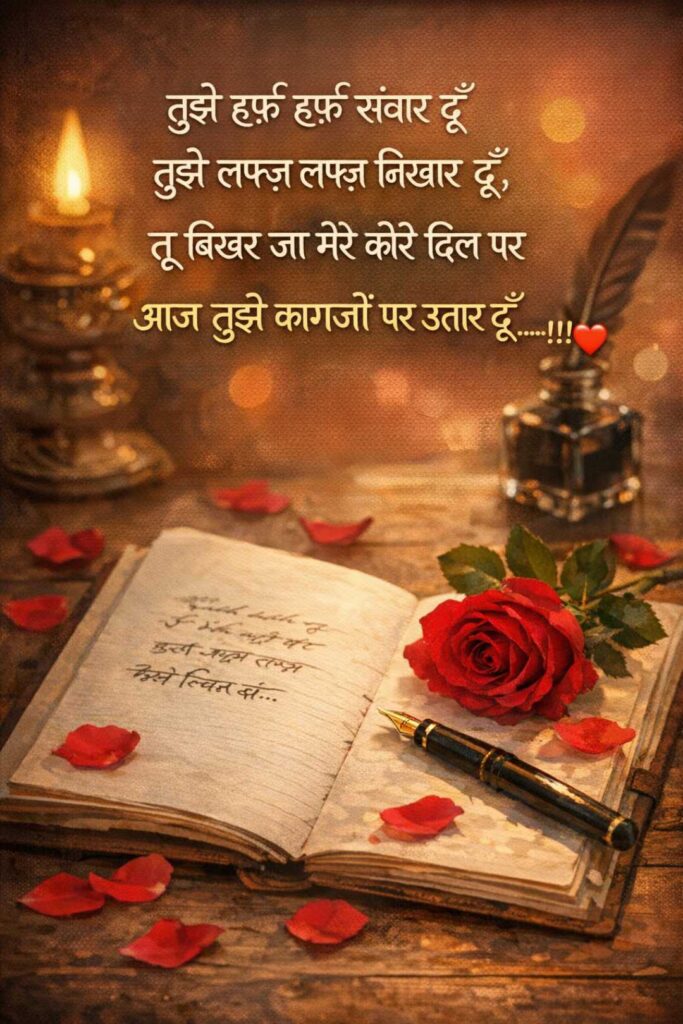 तुझे हर्फ़ हर्फ़ संवार दूँ
तुझे लफ्ज़ लफ्ज़ निखार दूँ,
तू बिखर जा मेरे कोरे दिल पर
आज तुझे कागजों पर उतार दूँ.....!!!❤️